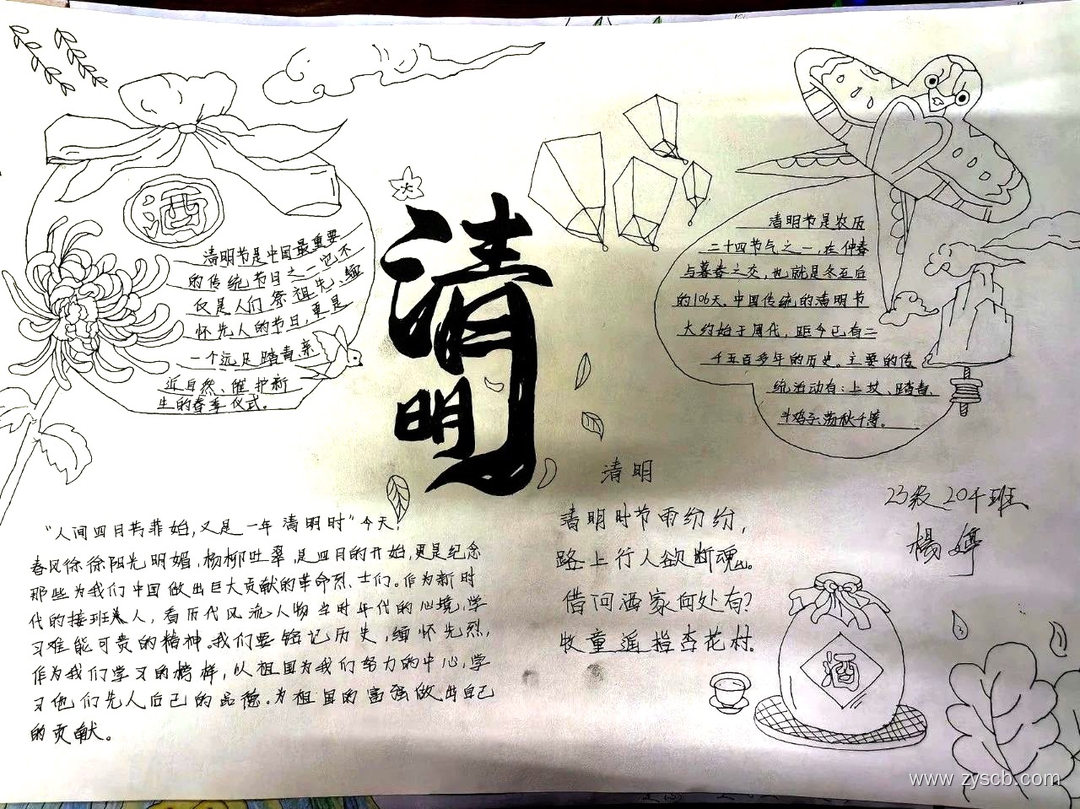 酒
清明节是中国最重要
的传统节日之一，它不
仅是人们祭祖先、缅
怀先人的节日，更是
一个远足踏青、亲
近自然、催护新
生的春季仪式。
清明
清明节是农历
二十四节气之一，在仲春
与暮春之交，也就是冬至后
的106天。中国传统的清明节
大约始于周代，距今已有二
千五百多年的历史。主要的传
统活动有：上坟、踏青、
斗鸡子、荡秋千等。
"人间四月芳菲始，又是一年清明时"今天，
春风徐徐阳光明媚，杨柳吐翠，是四月的开始，更是纪念
那些为我们中国做出巨大贡献的革命烈士们。作为新时
代的接班人，看历代风流人物当时年代的心境，学
习难能可贵的精神。我们要铭记历史，缅怀先烈，
作为我们学习的榜样，以祖国为我们努力的中心，学
习他们先人后己的品德。为祖国的富强做出自己
的贡献。
清明
清明时节雨纷纷，
路上行人欲断魂。
借问酒家何处有？
牧童遥指杏花村.
23级20班
杨婷
酒
www.zyscb.com